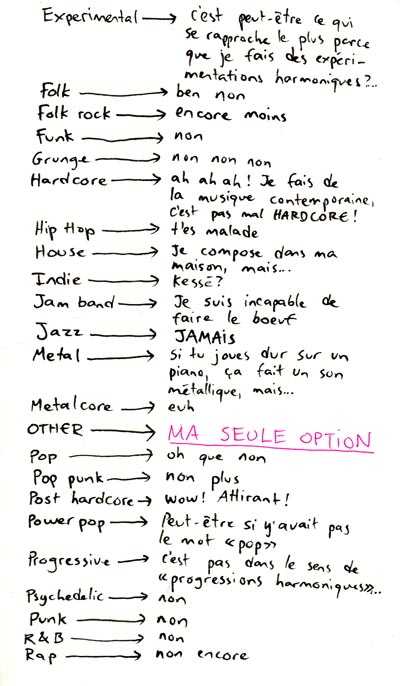 Experimental → c'est peut-être ce qui
se rapproche le plus parce
que je fais des expéri-
mentations harmoniques?...
Folk → ben non
Folk rock → encore moins
Funk → non
Grunge → non non non
Hardcore → ah ah ah! Je fais de
la musique contemporaine,
c'est pas mal HARDCORE!
Hip Hop → t'es malade
House → Je compose dans ma
maison, mais...
Indie → Kessé?
Jam band → Je suis incapable de
faire le boeuf
Jazz → JAMAIS
Metal → si tu joues dur sur un
piano, ça fait un son
métallique, mais...
Metalcore → euh
OTHER → MA SEULE OPTION
Pop → oh que non
Pop punk → non plus
Post hardcore → wow! Attirant!
Power pop → Peut-être si y'avait pas
le mot «pop»
Progressive → c'est pas dans le sens de
«progressions harmoniques»...
Psychedelic → non
Punk → non
R&B → non
Rap → non encore